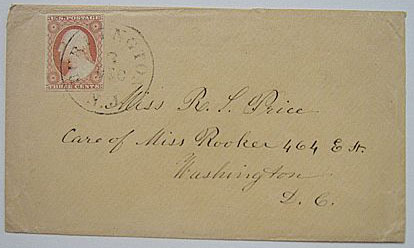 U.S. POSTAGE
THREE CENTS
N.J.
Miss R. S. Price
Care of Miss Rooker 464 E st.
Washington
D. C.